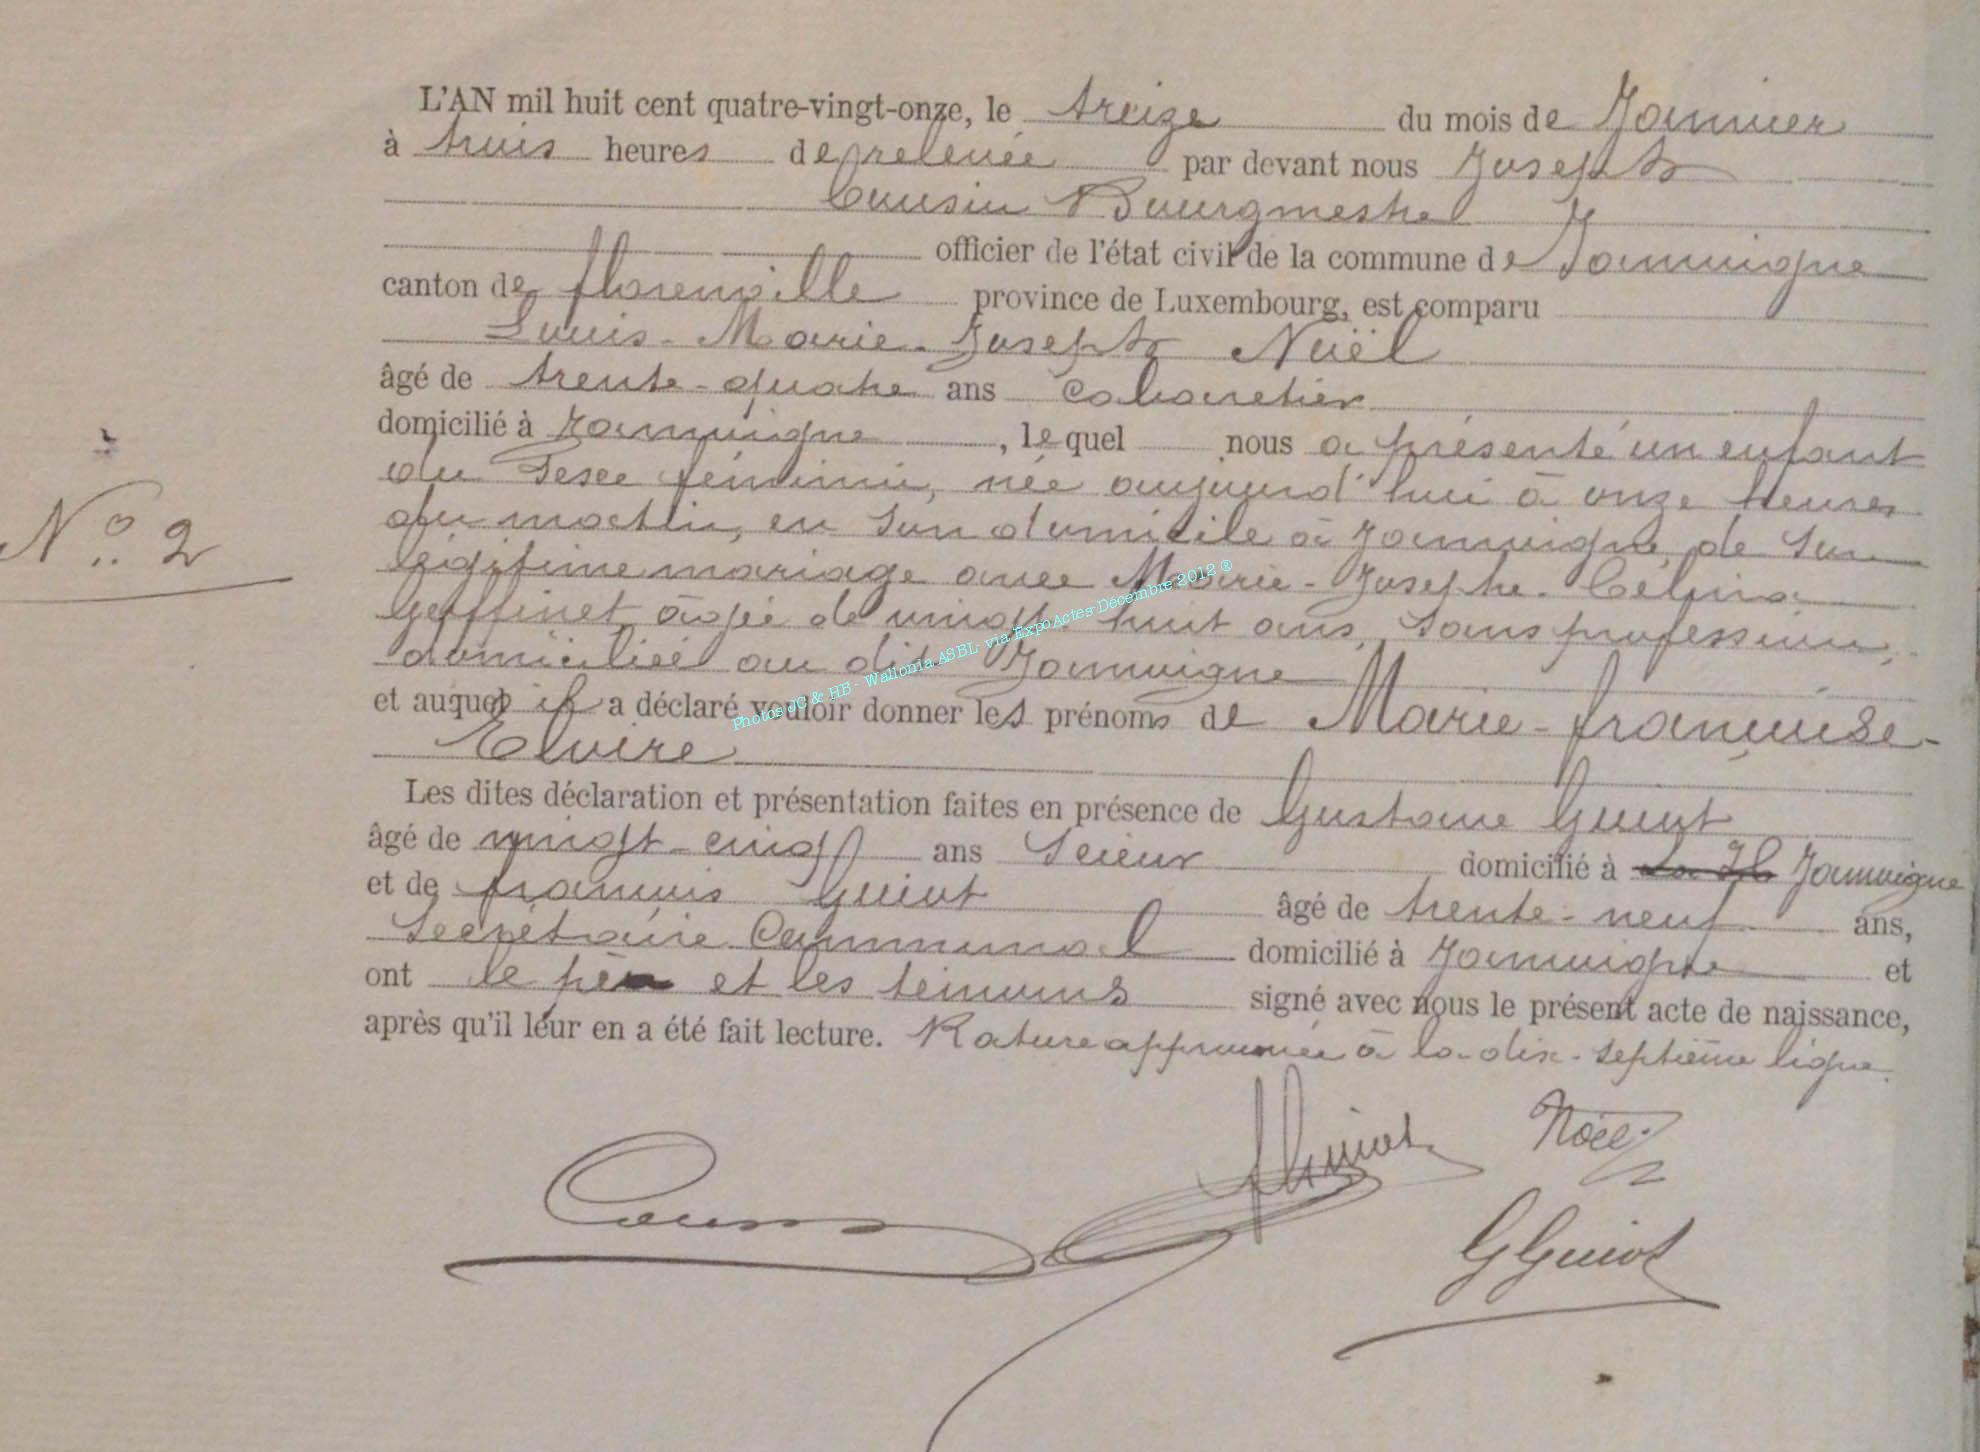 L'AN mil huit cent quatre-vingt-onze, le treize du mois de Janvier
à trois heures de relevée par devant nous Joseph
Cousin Bourgmestre
officier de l'état civil de la commune de Jamoigne
canton de florenville province de Luxembourg, est comparu
Louis-Marie-Joseph Noël
âgé de trente-quatre ans Cabaretier
domicilié à Jamoigne, lequel nous a présenté un enfant
du Sexe féminin, née aujourd'hui à onze heures
du matin, en son domicile à Jamoigne, de Son
N° 2
légitime mariage avec Marie-Josephe-Célina
Geffinet, âgée de vingt-huit ans, Sans profession,
domiciliée au dit Jamoigne
et auquel il a déclaré vouloir donner les prénoms de Marie-françoise-
Elvire
Les dites déclaration et présentation faites en présence de Gustave Guiot
âgé de vingt-cinq ans Scieur domicilié à Jamoigne
et de françois Guiot âgé de trente-neuf ans,
Secrétaire Communal domicilié à Jamoigne et
ont le père et les témoins signé avec nous le présent acte de naissance,
après qu'il leur en a été fait lecture. Rature approuvée à la dix-septième ligne.
Noël
Cousin
GGuiot
Photos JC & HB - Wallonia ASBL- via ExpoActes-Décembre 2012 ®